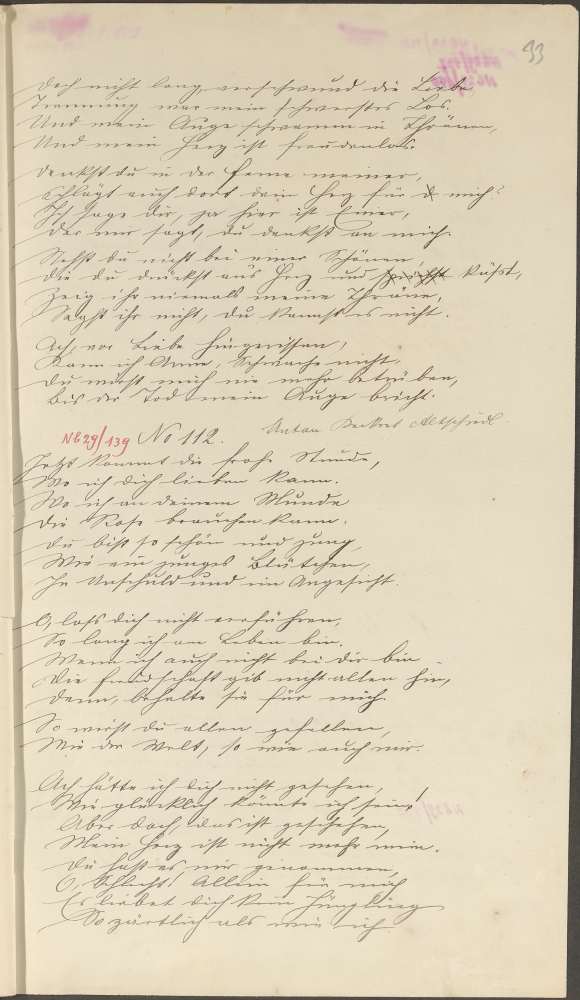 33
Doch nicht lang verschwund die Liebe
Trennung war mein schwerstes Los.
Und mein Auge schwamm in Thränen,
Und mein Herz ist freudenlos.
Denkst du in der Ferne meiner,
Schlägt auch dort dein Herz für mich?
Ich sage dir, ja hier ist Einer,
Der mir sagt, du denkst an mich.
Sehst du nicht bei einer Schönen,
Die du drückst ans Herz und küßt,
Zeig ihr niemals meine Thräne,
Sagst ihr nicht, du kannst es nicht.
Ach, vor Liebe hingerissen,
Kann ich Arme, Schwache nicht.
Du wirst mich nie mehr betrüben,
Bis der Tod mein Auge bricht.
NB 29/139 No 112. Anton Altschiedl.
Jetzt kommt die frohe Stunde,
Wo ich dich lieben kann.
Wo ich an deinem Munde
Die Rose brauchen kann.
Du bist so schön und jung,
Wie ein junges Blütchen,
In Unschuld und im Angesicht.
O, lass dich nicht verführen,
So lang ich am Leben bin.
Wenn ich auch nicht bei dir bin
Die Freundschaft gib nicht allen hin,
Denn, behalte sie für mich.
So wirst du allen gefallen,
Wie der Welt, so wie auch mir.
Ach hätte ich dich nicht gesehen,
Wie glücklich könnte ich sein!
Aber doch, das ist geschehen,
Mein Herz ist nicht mehr mein.
Du hast es mir genommen,
O, Allein für mich
Es liebet dich kein Jüngling
So zärtlich als wie ich.